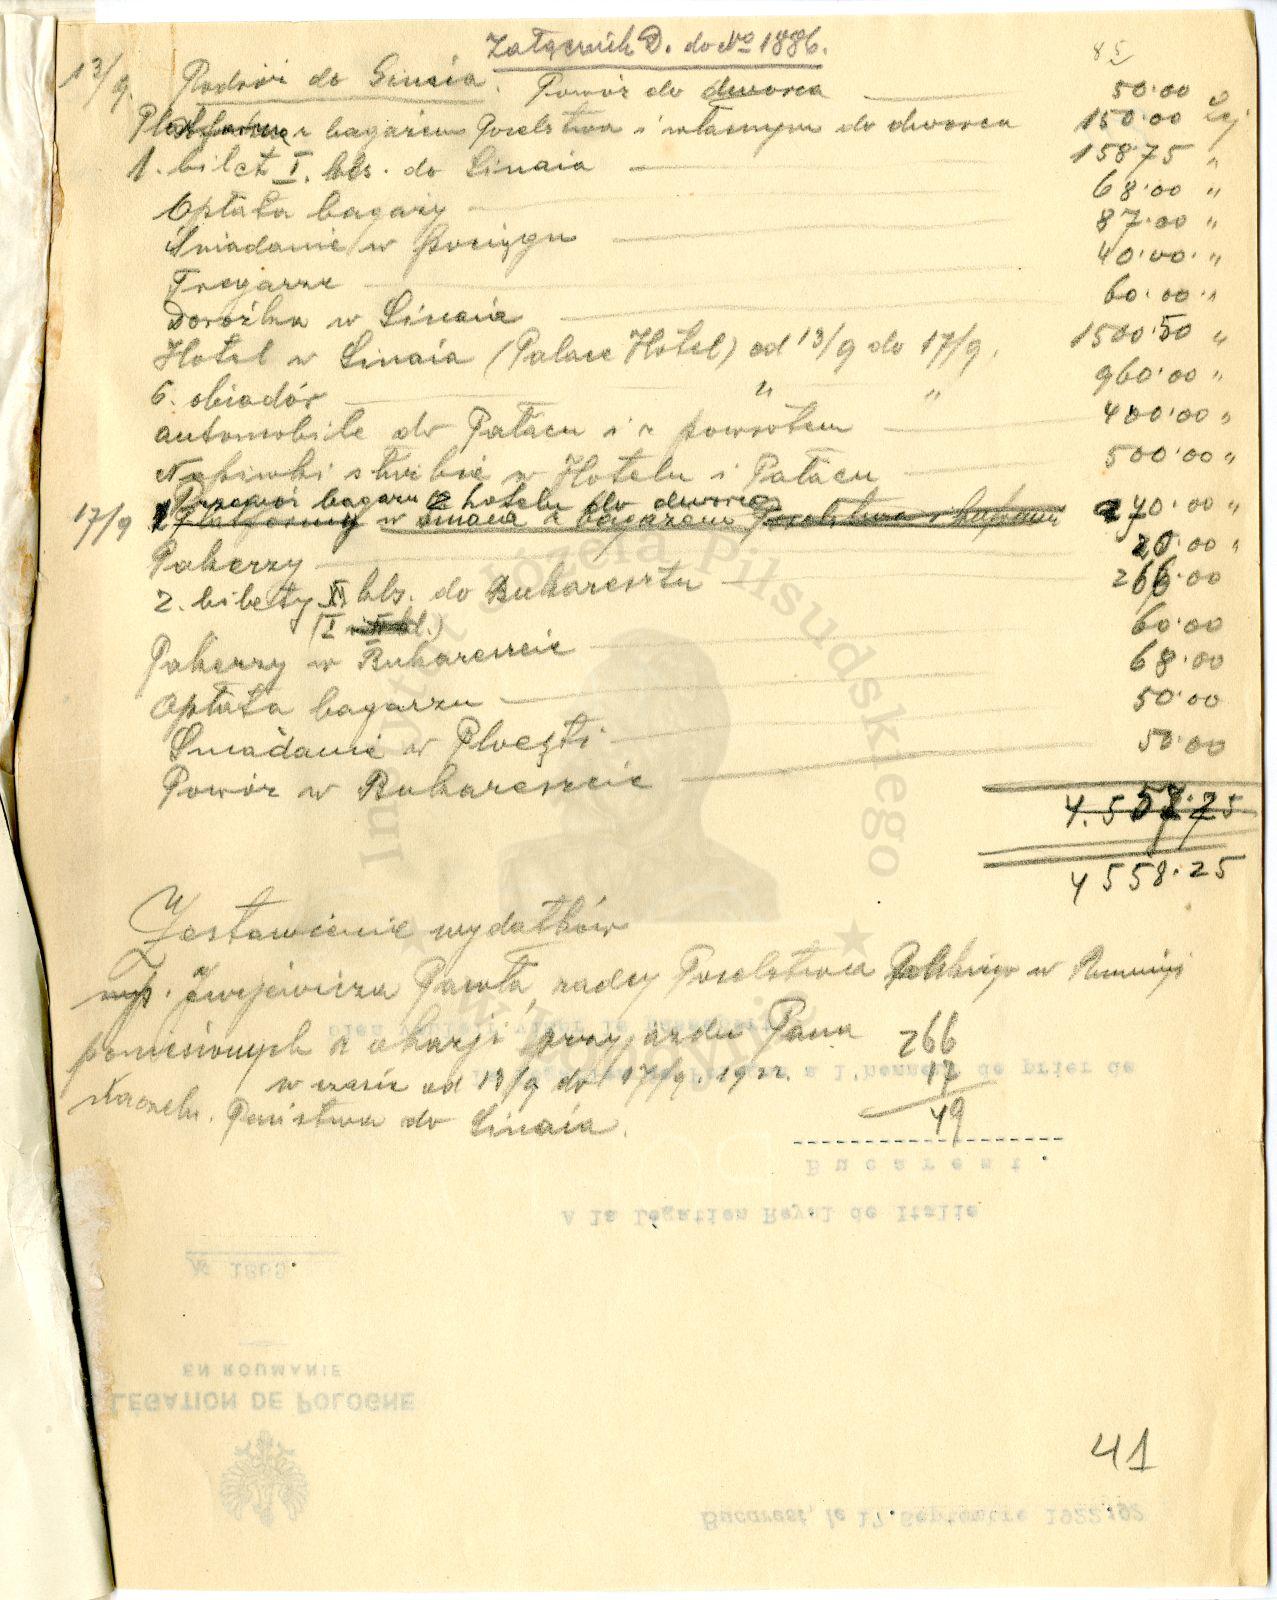 Załącznik D. do No 1886.
85
13/9. Podróż do Sinaia. Powóz do dworca 50.00
Platformę z bagażem Poselstwa i własnym do dworca 150.00 Lej
1. bilet I. kls. do Sinaia 158.75 "
Opłata bagaży 68.00 "
Śniadanie w pociągu 87.00 "
Tragarze 40.00. "
Dorożka w Sinaia 60.00 "
Hotel w Sinaia (Palace Hotel) od 13/9 do 17/9. 1500.50 "
6. obiadów " " 960.00 "
automobile do Pałacu i z powrotem 400.00 "
Napiwki służbie w Hotelu i Pałacu 500.00 "
Przewóz bagażu z hotelu do dworca
17/9 Platformy w Sinaia z bagażem Poselstwa i 40.00 "
Pakerzy 20.00 "
2. bilety II kls. do Bukaresztu 266.00
(I kl.)
Pakerzy w Bukareszcie 60.00
Opłata bagażu 68.00
Śniadanie w Ploeşti 50.00
Powóz w Bukareszcie 50.00
4.557.25
4558.25
Zestawienie wydatków
mjr. Iwejewicza Pawła radcy Poselstwa Polskiego w Rumunji
poniesionych z okazji przyjazdu Pana
w czasie od 13/9 do 17/9. 1922.
Naczeln. Państwa do Sinaia.
266
17
49
oien vouloir viser le passeport
a l'honneur de prier de
Bucarest.
A la Légation Royal de Italie
№ 1869.
EN ROUMANIE
LÉGATION DE POLOGNE
41
Bucarest, le 17.Septembre 1922.192
Instytut Józefa Piłsudskiego
★ w Londynie ★